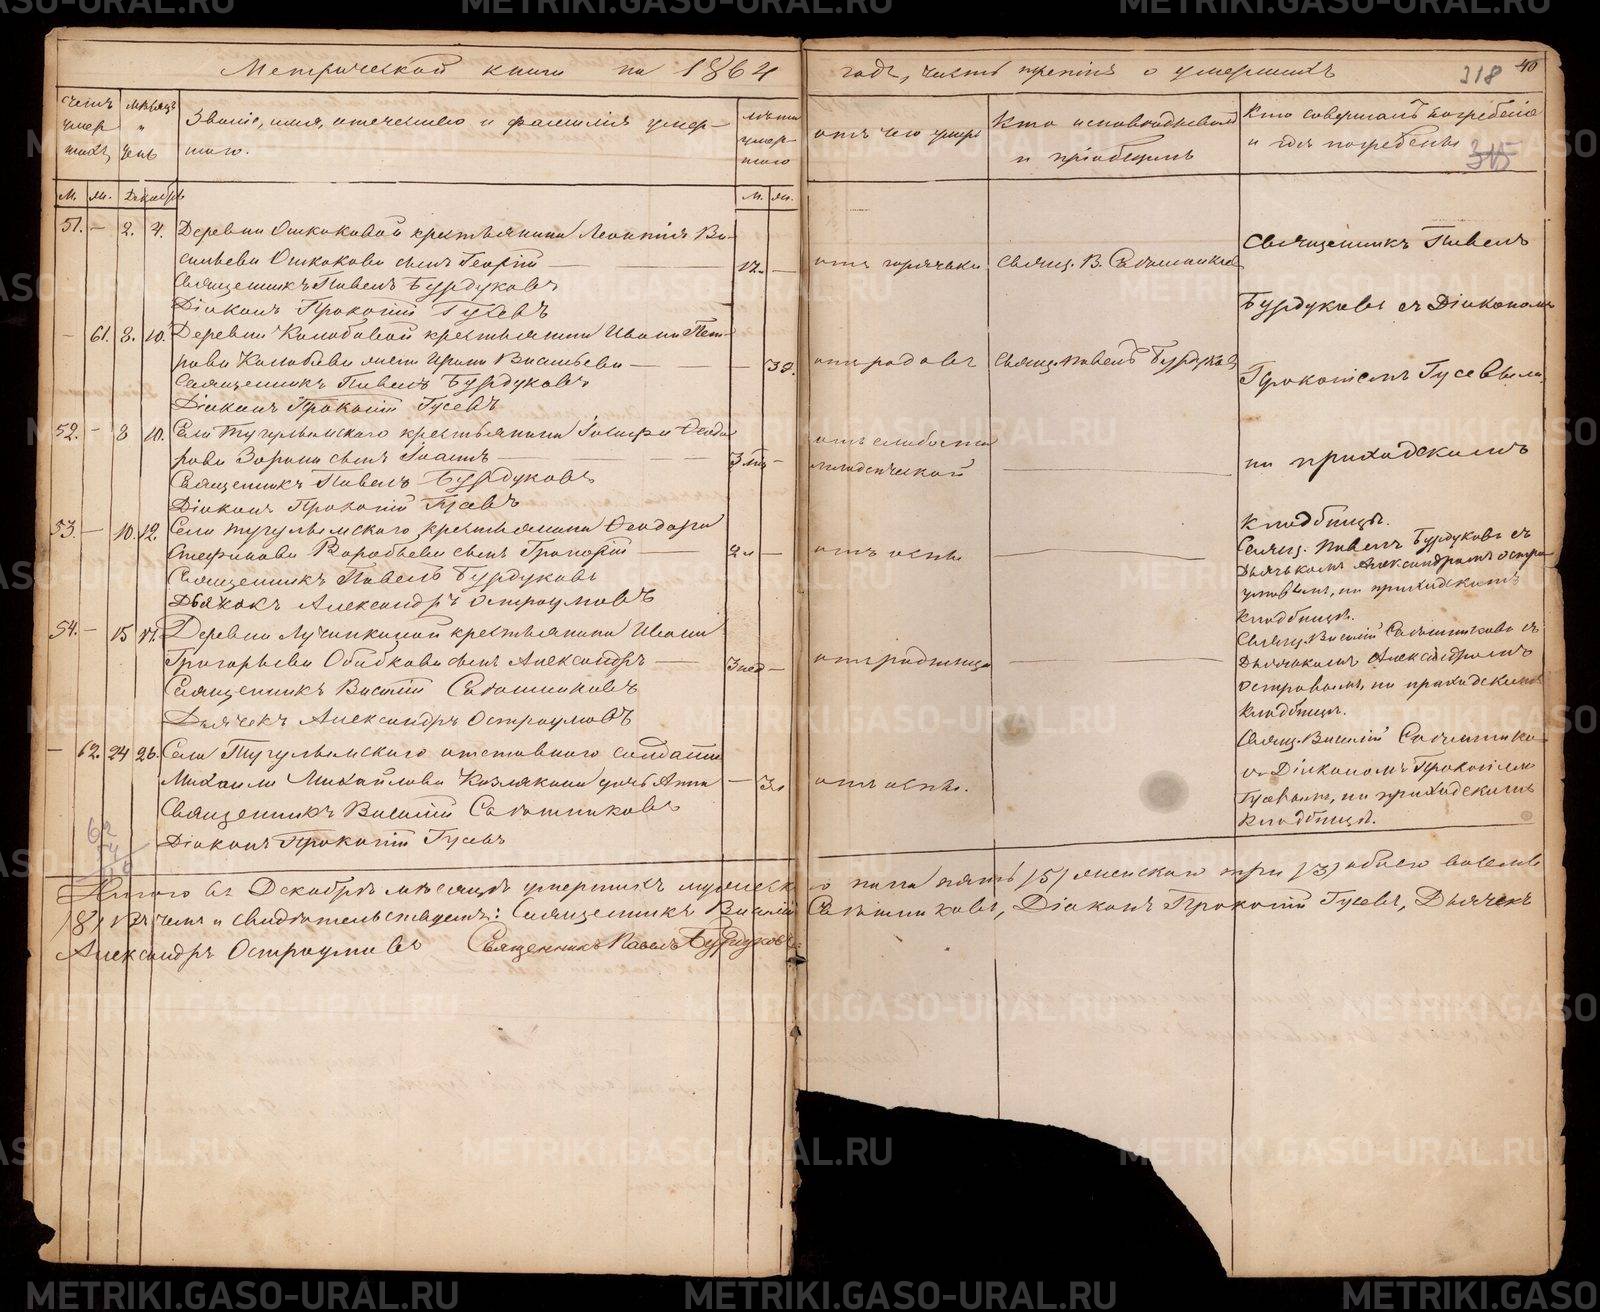 Метрической книги на 1864
годъ, часть третія о умершихъ
318
40
Счетъ умершихъ,
Мѣсяцъ и день
Званіе, имя, отечество и фамилія умершаго.
лѣта умершаго
отъ чего умеръ
Кто исповѣдывалъ и пріобщалъ
Кто совершалъ погребеніе и гдѣ погребены
315
М. | Ж. | Декабрь
М. | Ж.
51. — 2. 4. Деревни Ошкуковой крестьянина Леонтія Ва-
сильева Ошкукова сынъ Георгій — 12. —
отъ горячки
Свящ. В. Сатошников
Священникъ Павелъ Бурдуковъ
Діаконъ Прокопій Гусевъ
Священникъ Павелъ
Бурдуковъ съ Діакономъ
Прокопіемъ Гусевымъ,
на приходскомъ
кладбищѣ.
— 61. 8. 10. Деревни Колобовой крестьянина Ивана Пет-
рова Колобова жена Ирина Васильева — — 39.
отъ родовъ
Свящ. Павелъ Бурдуковъ
Священникъ Павелъ Бурдуковъ
Діаконъ Прокопій Гусевъ
52. — 8 10. Села Тугулымскаго крестьянина Іосифа Ѳеодо-
рова Зорина сынъ Іоаннъ — 3 мѣ —
отъ слабости
младенческой
Священникъ Павелъ Бурдуковъ
Діаконъ Прокопій Гусевъ
53. — 10. 12. Села Тугулымскаго крестьянина Ѳеодора
Стефанова Воробьева сынъ Григорій — 2 л —
отъ оспы
Священникъ Павелъ Бурдуковъ
Дьячокъ Александръ Остроумовъ
Свящ. Павелъ Бурдуковъ съ
Дьячкомъ Александромъ Остро-
умовымъ, на приходскомъ
кладбищѣ.
54. — 15 17. Деревни Лучинкиной крестьянина Ивана
Григорьева сынъ Александръ — 3 нед —
отъ родимца
Священникъ Василій Сатошниковъ
Дьячекъ Александръ Остроумовъ
Свящ. Василій Сатошниковъ съ
Дьячкомъ Александромъ
на приходскомъ
кладбищѣ.
— 62. 24 26. Села Тугулымскаго отставного солдата
Михаила Михайлова Козлякина дочь Анна — 3 л
отъ оспы.
Священникъ Василій Сатошниковъ
Діаконъ Прокопій Гусевъ
Свящ. Василій Сатошников
съ Діакономъ Прокопіемъ
Гусевымъ, на приходскомъ
кладбищѣ.
62
54
Итого въ Декабрѣ мѣсяцѣ умершихъ мужеска-
го пола пять /5/ женскаго три /3/ обоего восемь
/8/ Въ чемъ и свидѣтельствуемъ: Священникъ Василій
Сатошниковъ, Діаконъ Прокопій Гусевъ, Дьячекъ
Александръ Остроумовъ Священникъ Павелъ Бурдуковъ
METRIKI.GASO-URAL.RU